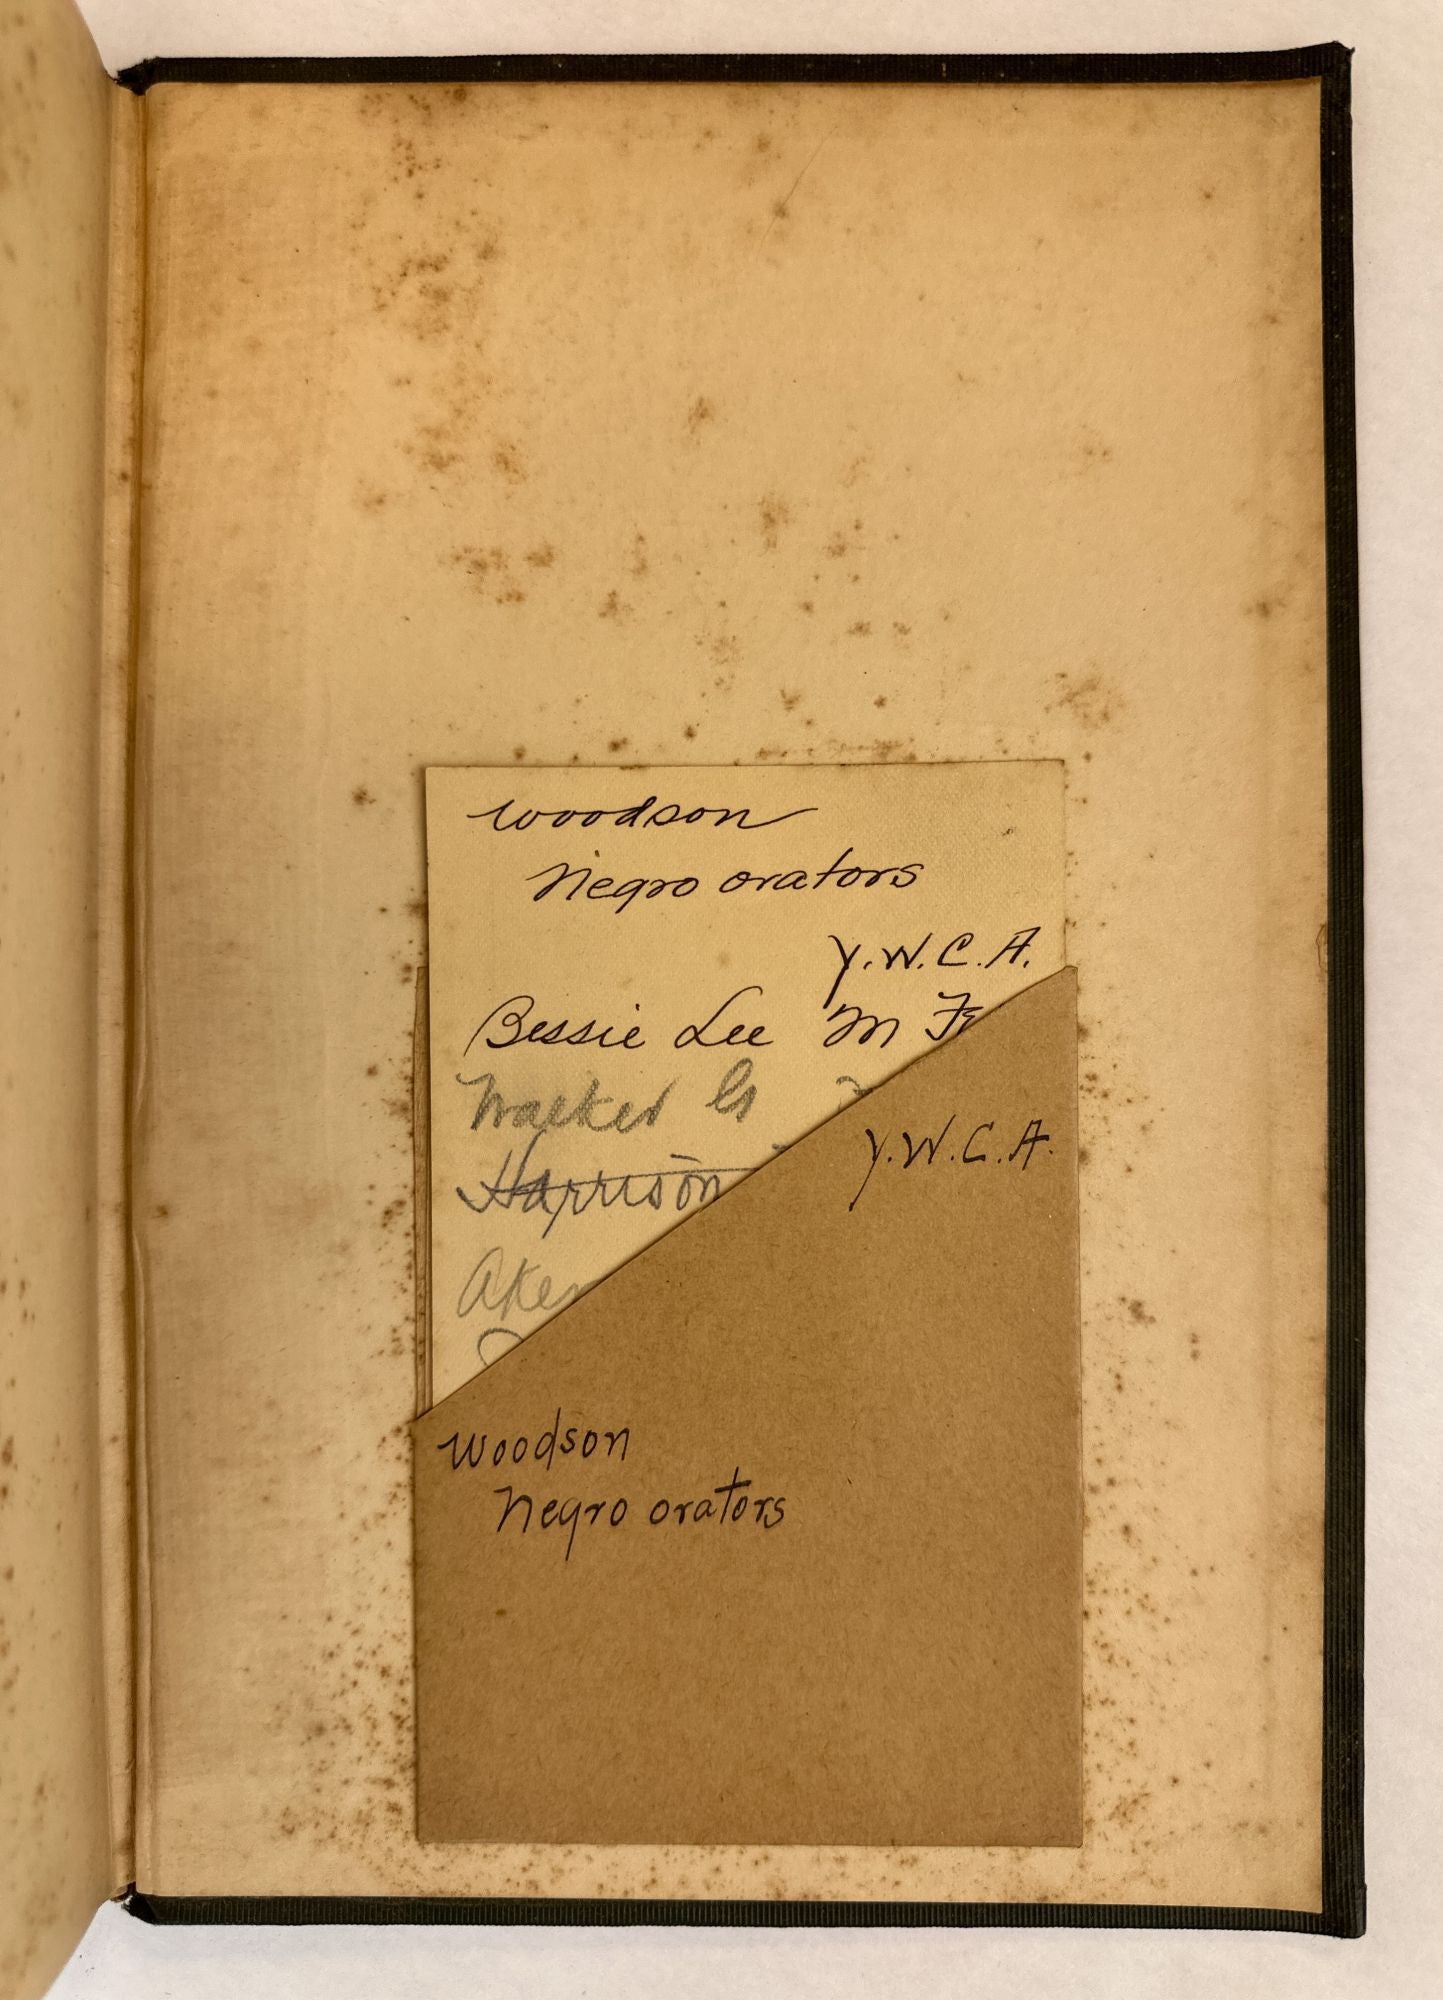 Woodson
Negro orators
Y.W.C.A.
Bessie Lee M
Walker G
Harrison
Aker
Y.W.C.A.
Woodson
Negro orators